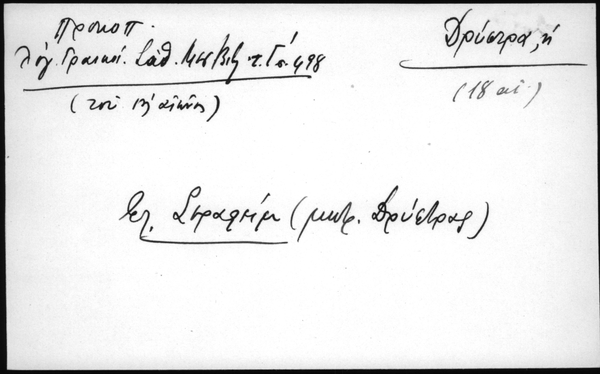 Προκοπ.
Δρύστρα, ἡ
Λόγ. Γραικοί. Σάθ. Μεσ. Βιβ. τ. Γ΄ σ. 498
(τοῦ ιη΄ αἰῶνος)
(18 αἰ.)
Ἐπ. Σεραφείμ (μητρ. Δρύστρας)